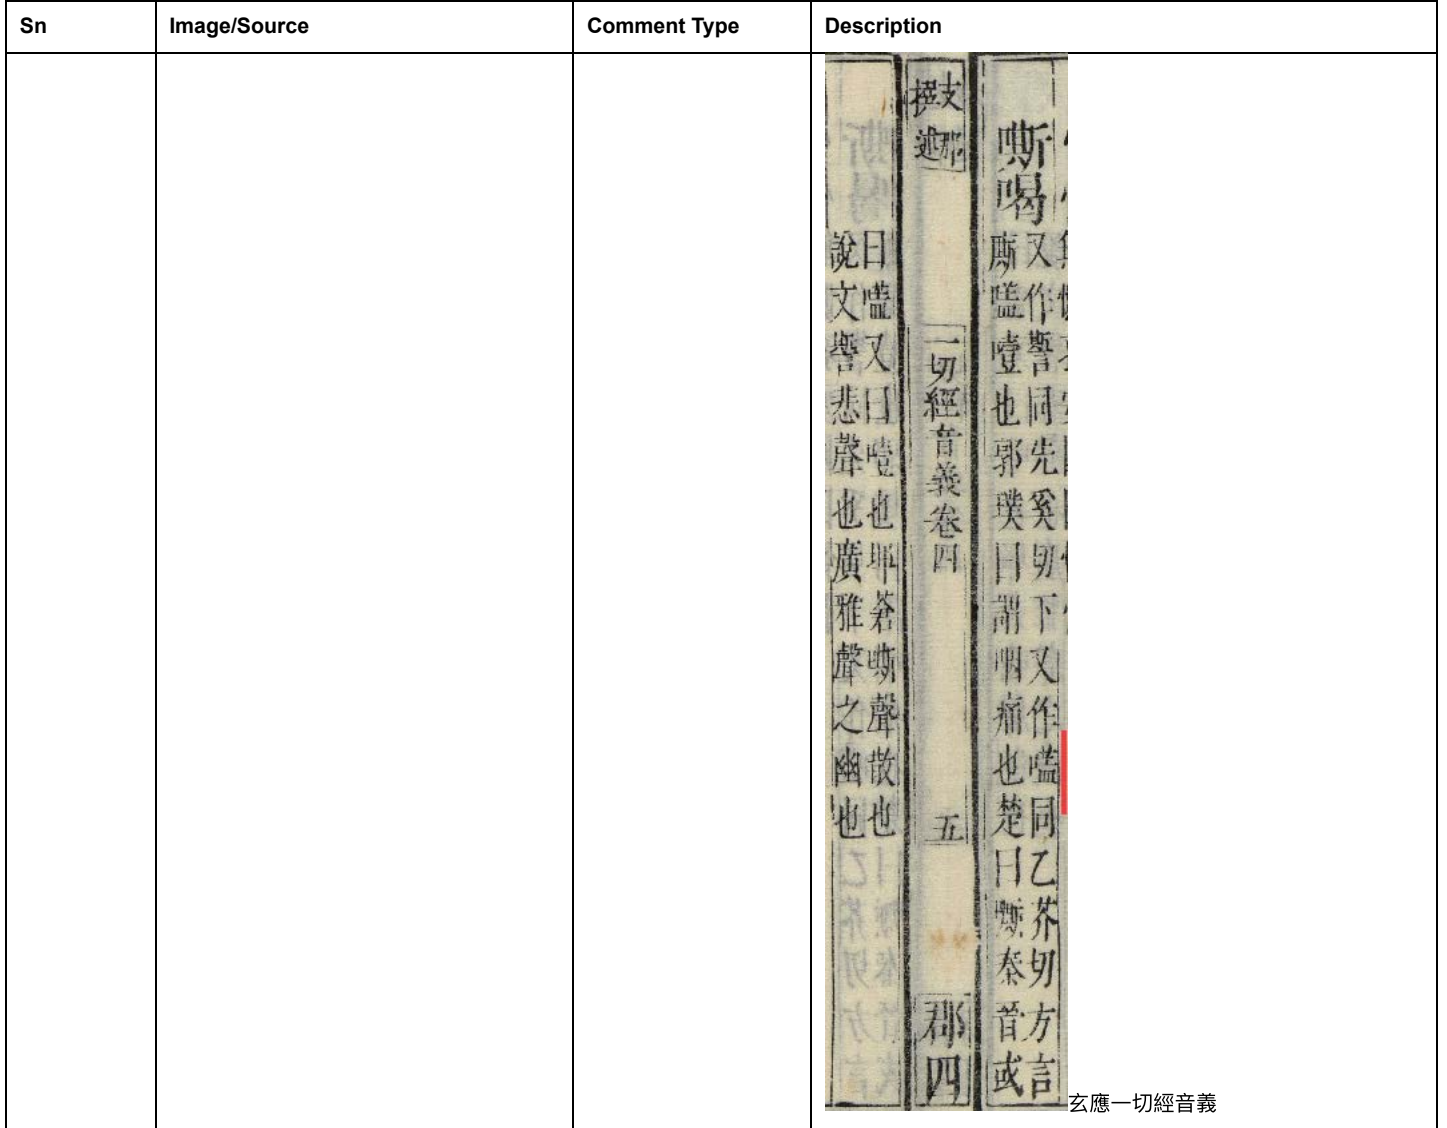 Sn Image/Source Comment Type Description
嘶喝
又作同先奚切下又作嗑同乙芥切方言
廝嗑噎也郭璞曰謂咽痛也楚曰廝秦晉或
支那
撰述
一切經音義卷四
五
郡四
曰嗑又曰噎也埤蒼嘶聲散也
說文悲聲也廣雅聲之幽也
玄應一切經音義